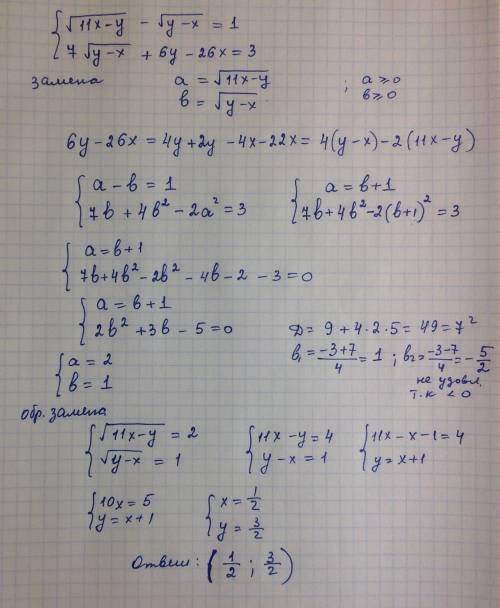 { √(11x-y) - √(y-x) = 1
7 √(y-x) + 6y - 26x = 3
замена a = √(11x-y) ; a ≥ 0
b = √(y-x) b ≥ 0
6y - 26x = 4y + 2y - 4x - 22x = 4(y-x) - 2(11x-y)
{ a - b = 1 { a = b+1
7b + 4b² - 2a² = 3 7b + 4b² - 2(b+1)² = 3
{ a = b+1
7b + 4b² - 2b² - 4b - 2 - 3 = 0
{ a = b+1
2b² + 3b - 5 = 0 Д = 9 + 4·2·5 = 49 = 7²
{ a = 2 b₁ = (-3+7)/4 = 1 ; b₂ = (-3-7)/4 = -5/2
b = 1 не удовл.
т.к < 0
обр. замена
{ √(11x-y) = 2 { 11x - y = 4 { 11x - x - 1 = 4
√(y-x) = 1 y - x = 1 y = x+1
{ 10x = 5 { x = 1/2
y = x+1 y = 3/2
Ответ: (1/2 ; 3/2)